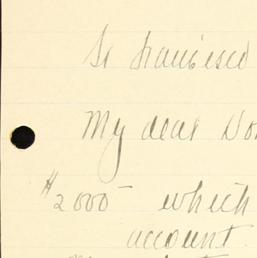 So Francisco
My dear
$2000- which
account.